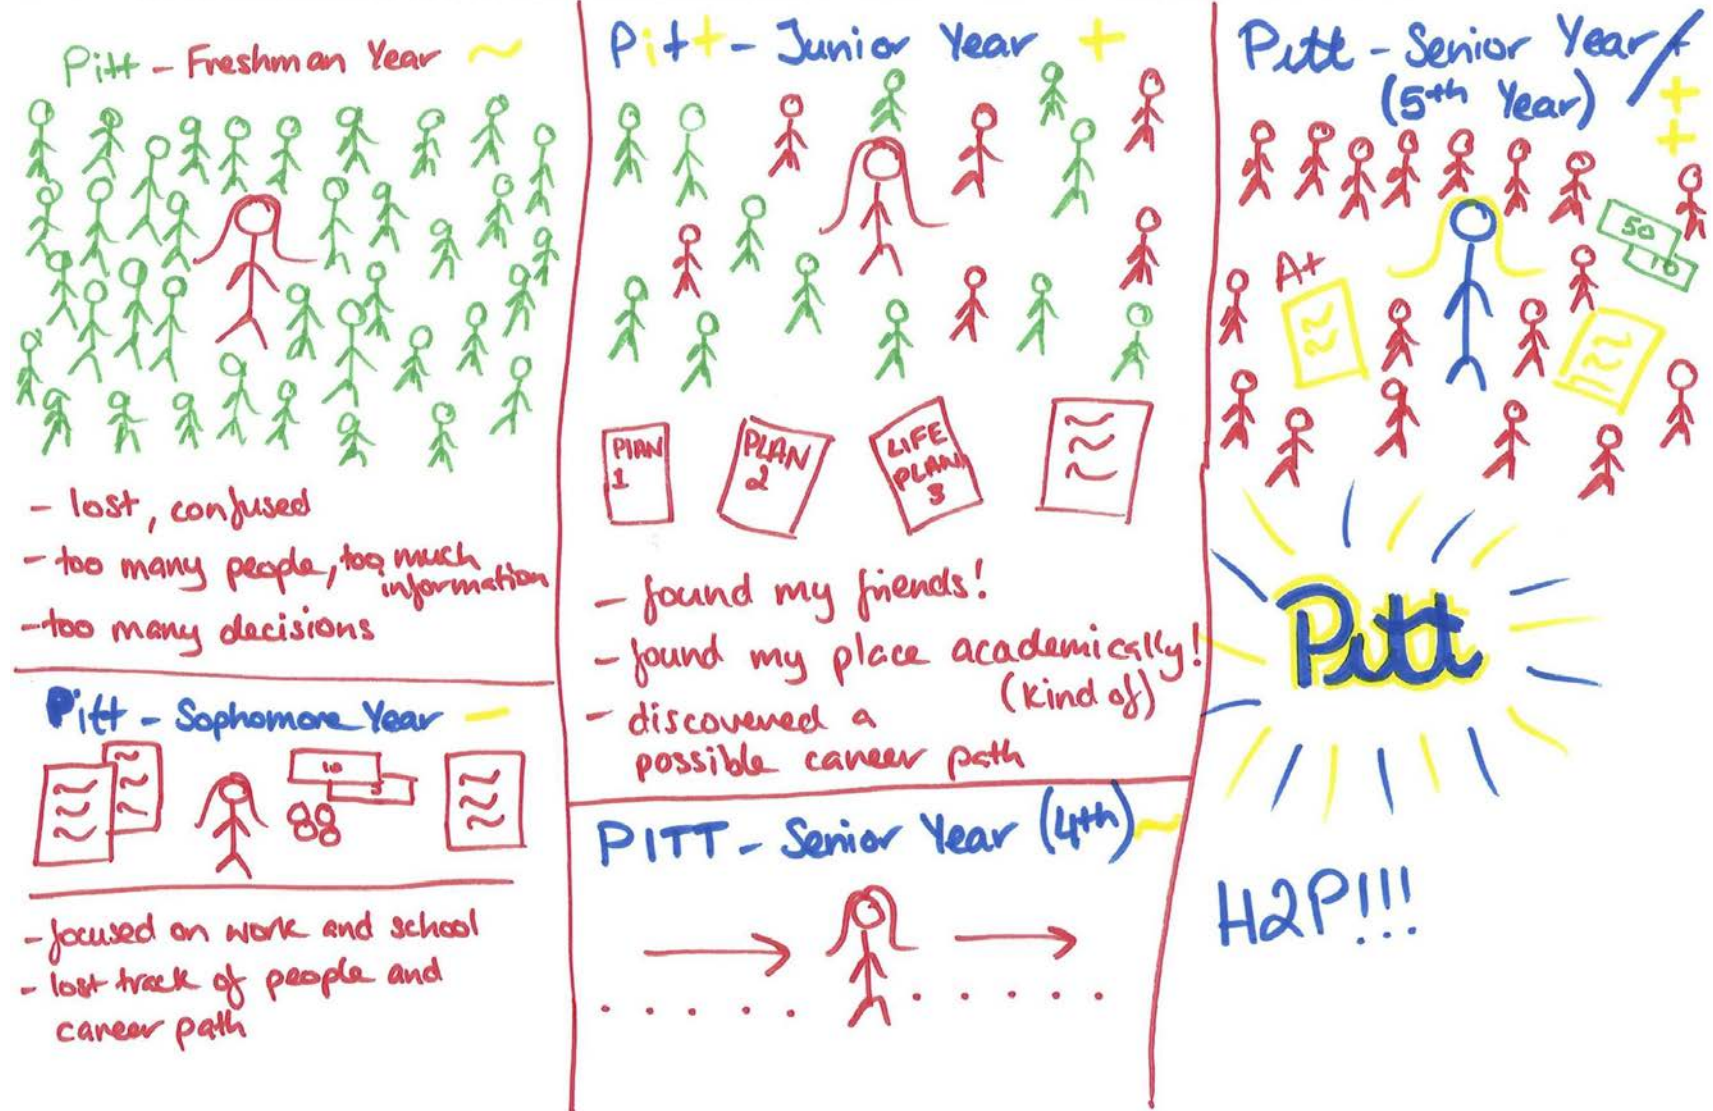 Pitt - Freshman Year ~
- lost, confused
- too many people, too much
information
- too many decisions
Pitt - Sophomore Year -
10
5
- focused on work and school
- lost track of people and
career path
Pitt - Junior Year +
PLAN
1
PLAN
2
LIFE
PLAN
3
- found my friends!
- found my place academically!
(kind of)
- discovered a
possible career path
PITT - Senior Year (4th) ~
Pitt - Senior Year /
(5th Year)
+
+
50
10
A+
Pitt
H2P!!!